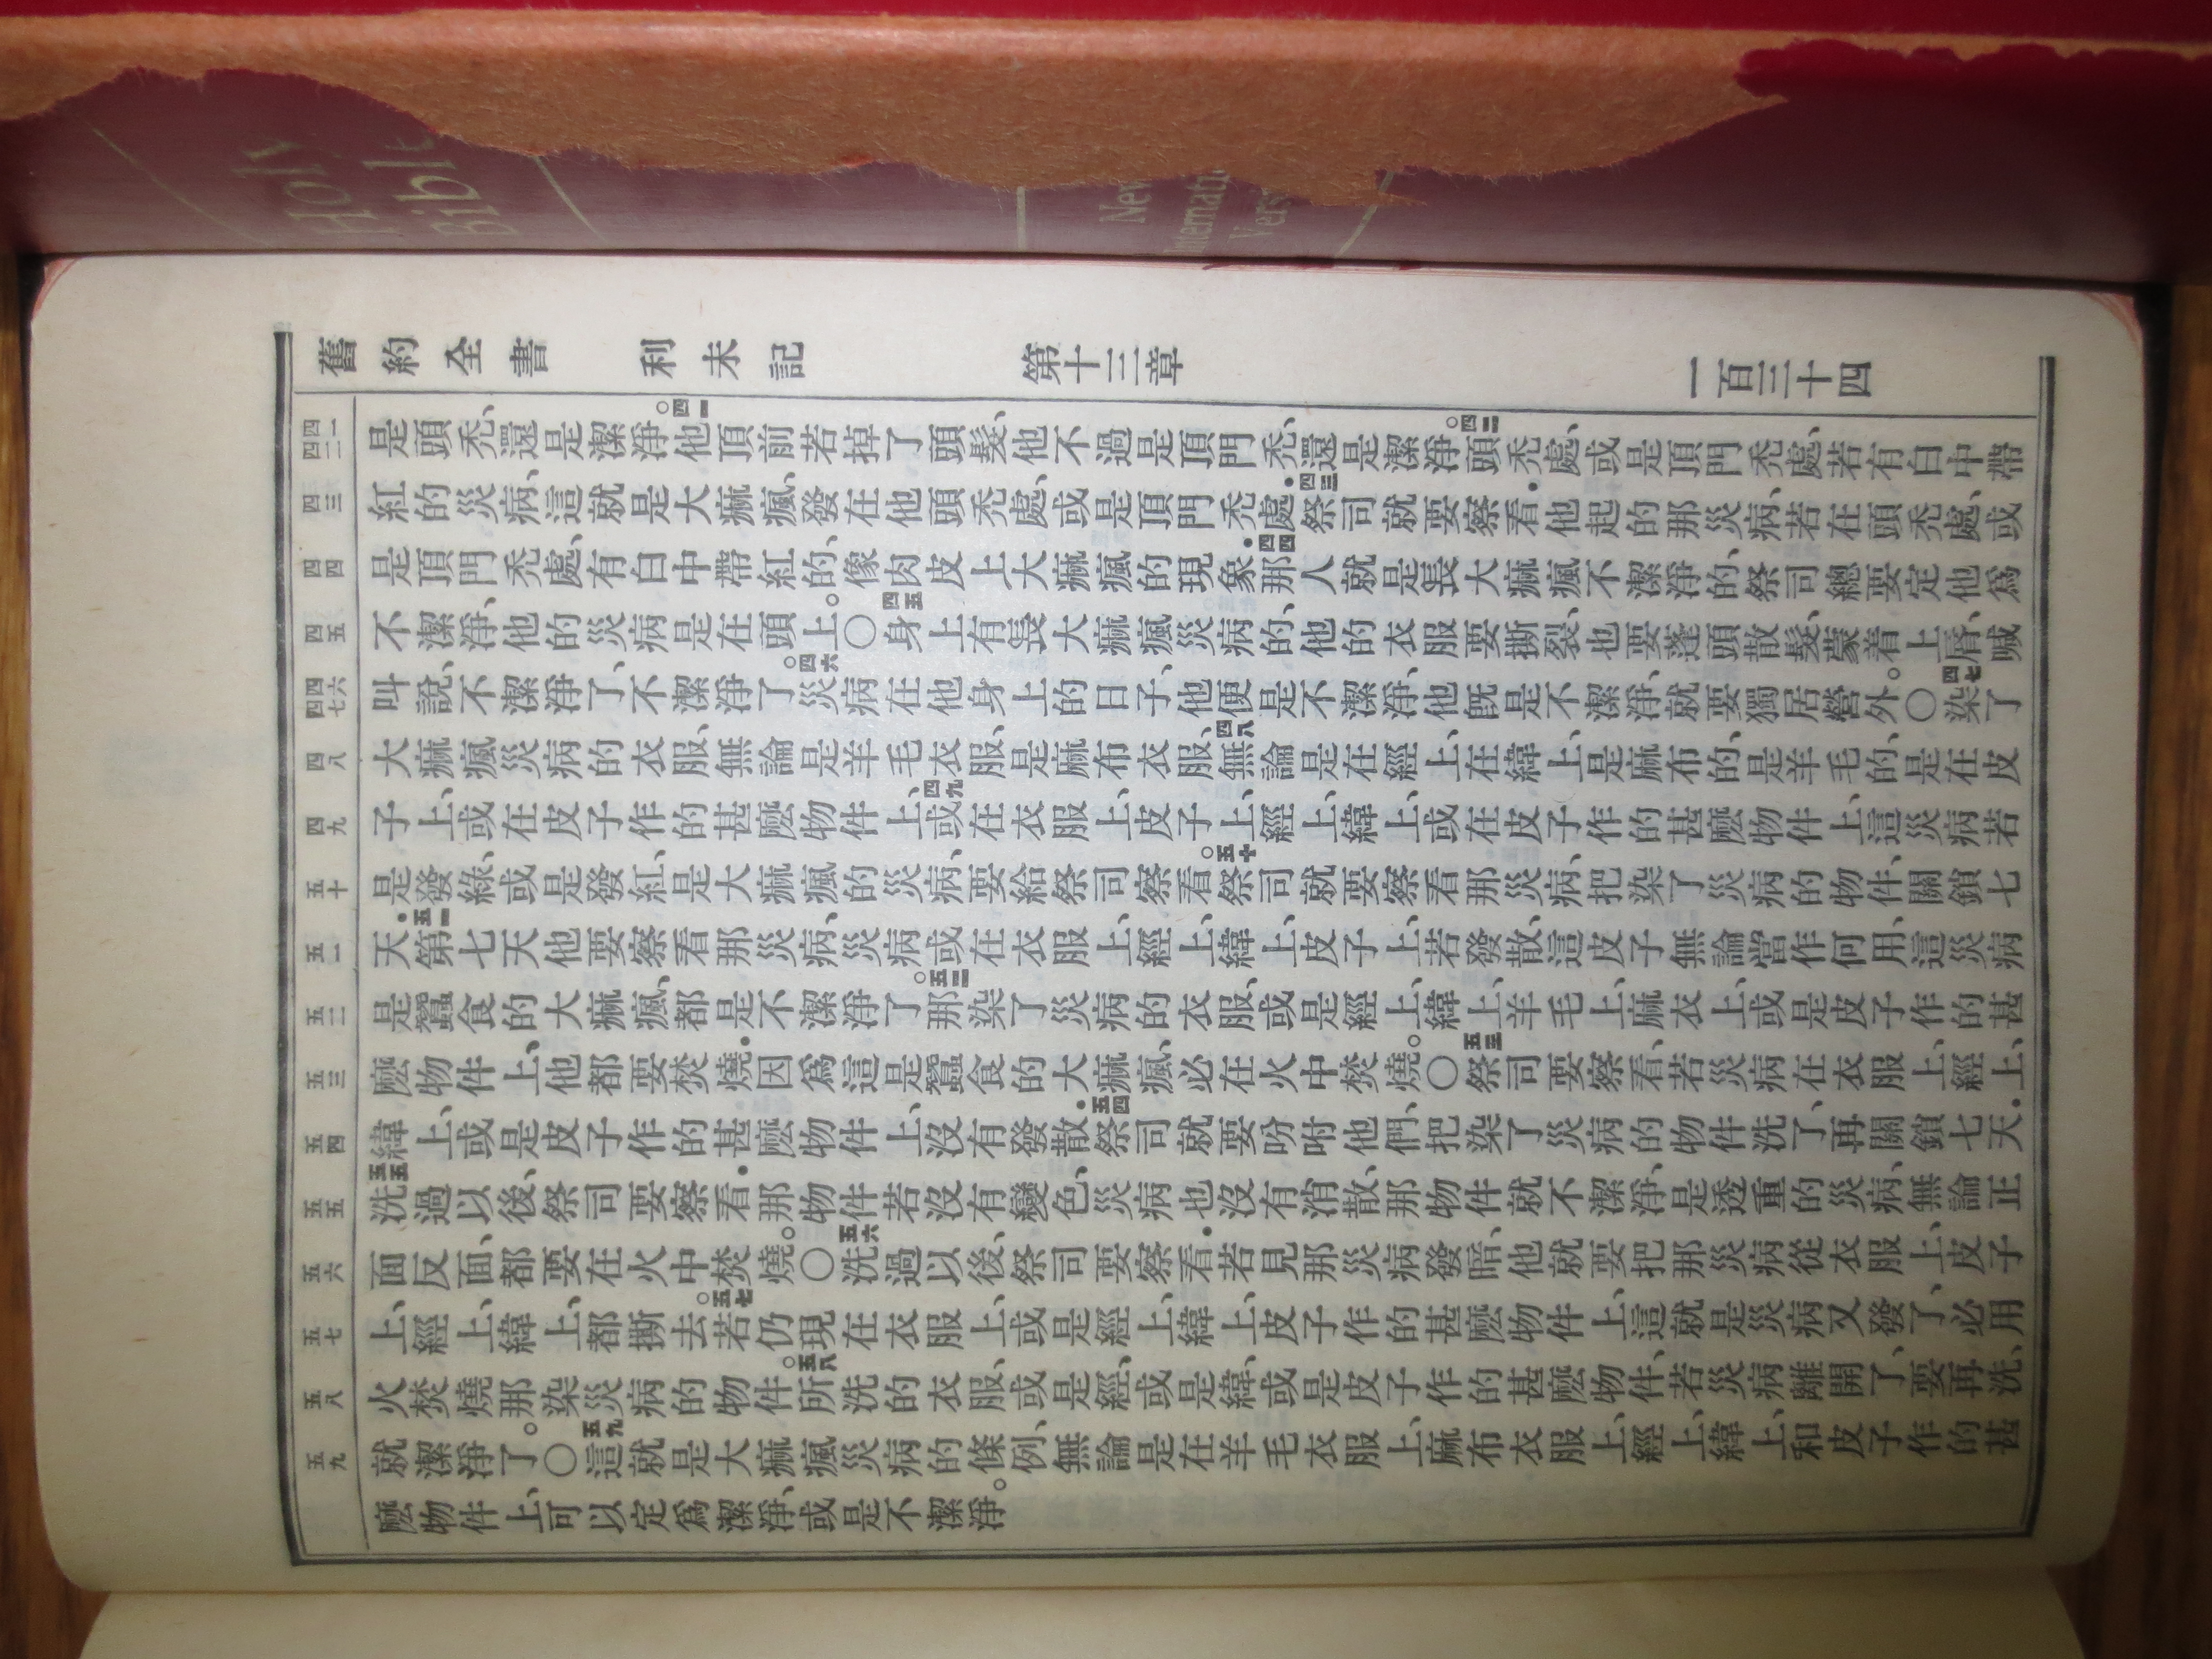 Holy
Bibl
New
nternati
Vers
舊約全書 利未記 第十三章 一百三十四
四一 四二
是頭禿、還是潔淨。四一他頂前若掉了頭髮、他不過是頂門禿、還是潔淨。四二頭禿處、或是頂門禿處、若有白中帶
四三
紅的災病、這就是大痲瘋、發在他頭禿處、或是頂門禿處．四三祭司就要察看．他起的那災病、若在頭禿處、或
四四
是頂門禿處、有白中帶紅的、像肉皮上大痲瘋的現象．四四那人就是長大痲瘋不潔淨的、祭司總要定他爲
四五
不潔淨、他的災病是在頭上。〇四五身上有長大痲瘋災病的、他的衣服要撕裂、也要蓬頭散髮、蒙着上脣、喊
四六 四七
叫說、不潔淨了、不潔淨了。四六災病在他身上的日子、他便是不潔淨、他既是不潔淨、就要獨居營外。〇四七染了
四八
大痲瘋災病的衣服、無論是羊毛衣服、是麻布衣服、四八無論是在經上、在緯上、是麻布的、是羊毛的、是在皮
四九
子上、或在皮子作的甚麽物件上、四九或在衣服上、皮子上、經上、緯上、或在皮子作的甚麽物件上、這災病若
五十
是發綠、或是發紅、是大痲瘋的災病、要給祭司察看。五十祭司就要察看那災病、把染了災病的物件、關鎖七
五一
天．五一第七天他要察看那災病、災病或在衣服上、經上、緯上、皮子上、若發散、這皮子無論當作何用、這災病
五二
是蠶食的大痲瘋、都是不潔淨了。五二那染了災病的衣服、或是經上、緯上、羊毛上、麻衣上、或是皮子作的甚
五三
麽物件上、他都要焚燒．因爲這是蠶食的大痲瘋、必在火中焚燒。〇五三祭司要察看、若災病在衣服上、經上、
五四
緯上、或是皮子作的甚麽物件上、沒有發散．五四祭司就要吩咐他們、把染了災病的物件洗了、再關鎖七天．
五五
五五洗過以後、祭司要察看．那物件若沒有變色、災病也沒有消散、那物件就不潔淨、是透重的災病、無論正
五六
面反面、都要在火中焚燒。〇五六洗過以後、祭司要察看．若見那災病發暗、他就要把那災病從衣服上、皮子
五七
上、經上、緯上、都撕去。五七若仍現在衣服上、或是經上、緯上、皮子作的甚麽物件上、這就是災病又發了、必用
五八
火焚燒那染災病的物件。五八所洗的衣服、或是經、或是緯、或是皮子作的甚麽物件、若災病離開了、要再洗、
五九
就潔淨了。〇五九這就是大痲瘋災病的條例、無論是在羊毛衣服上、麻布衣服上、經上、緯上、和皮子作的甚
麽物件上、可以定爲潔淨、或是不潔淨。